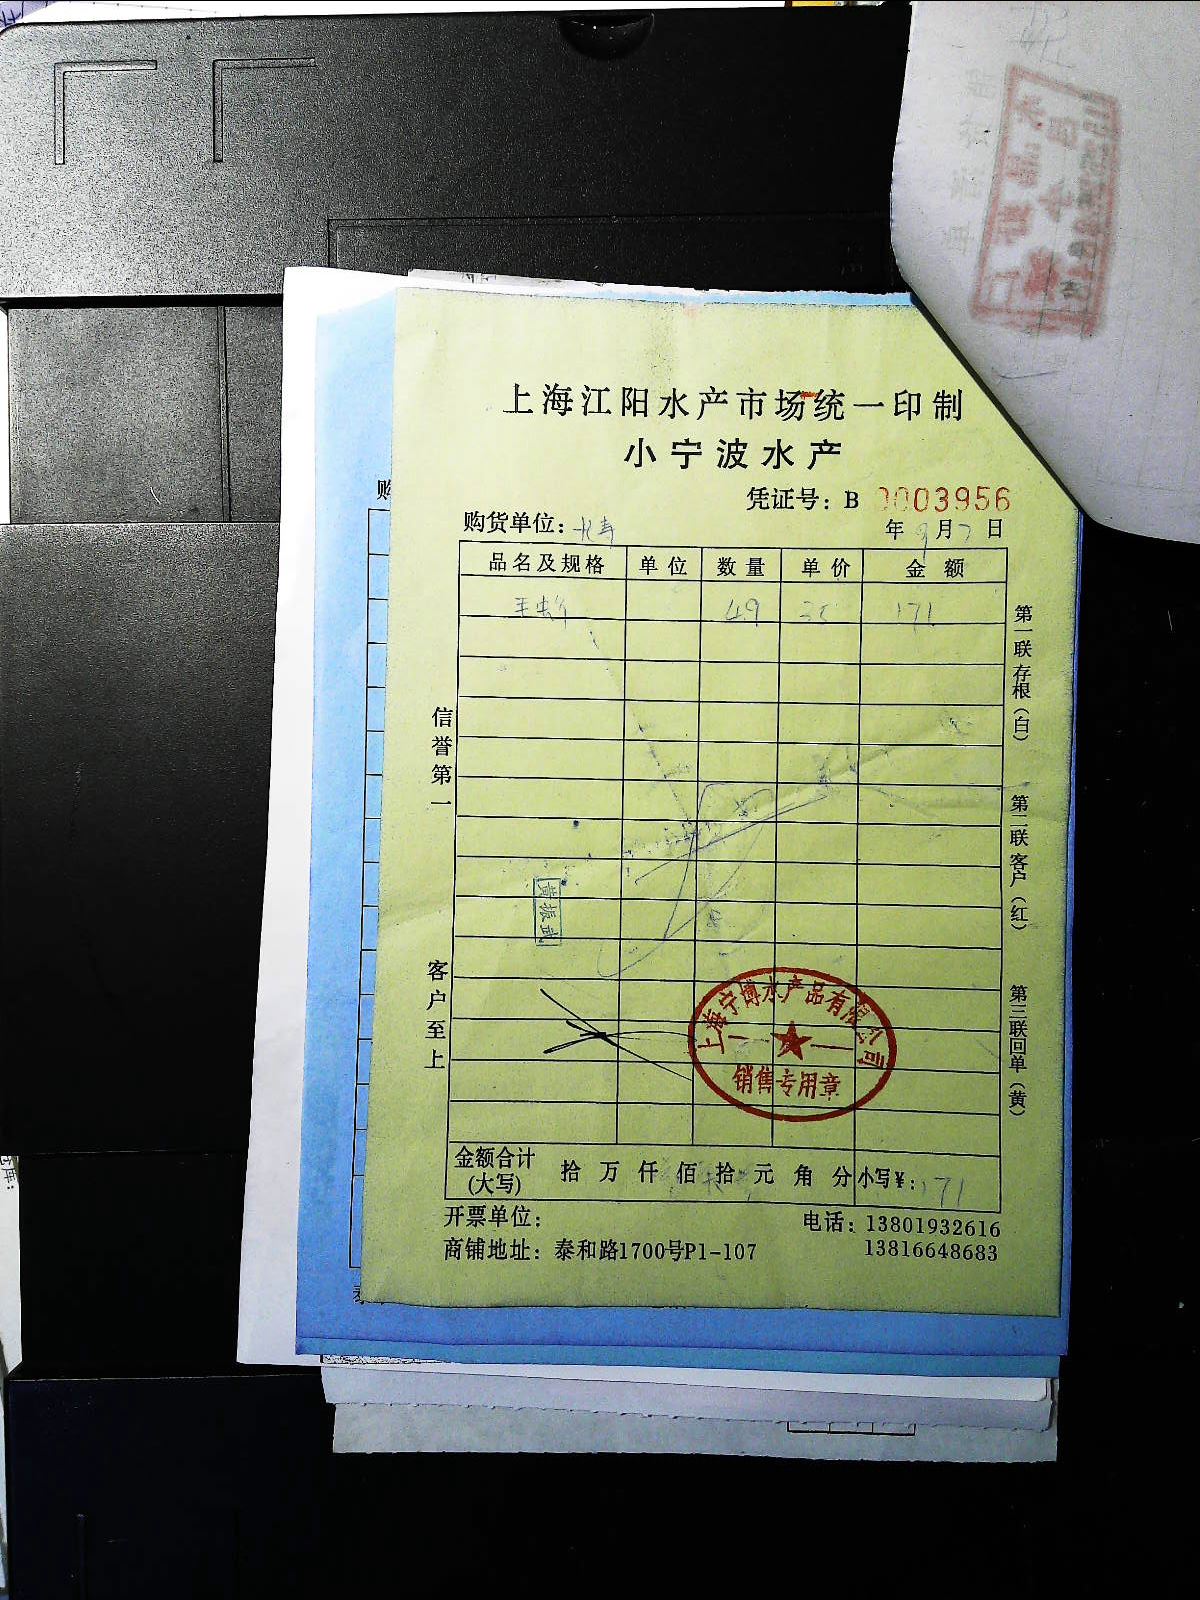 上海江阳水产市场统一印制
小宁波水产
凭证号：B 0003956
购货单位：
年9月7日
品名及规格 单位 数量 单价 金额
4.9 171
信誉第一
客户至上
第一联存根（白）
第二联客户（红）
第三联回单（黄）
黄振武
上海宁博水产品有限公司
销售专用章
金额合计(大写) 拾 万 仟 佰 拾 元 角 分 小写¥：171
开票单位：
电话：13801932616
商铺地址：泰和路1700号P1-107
13816648683
购